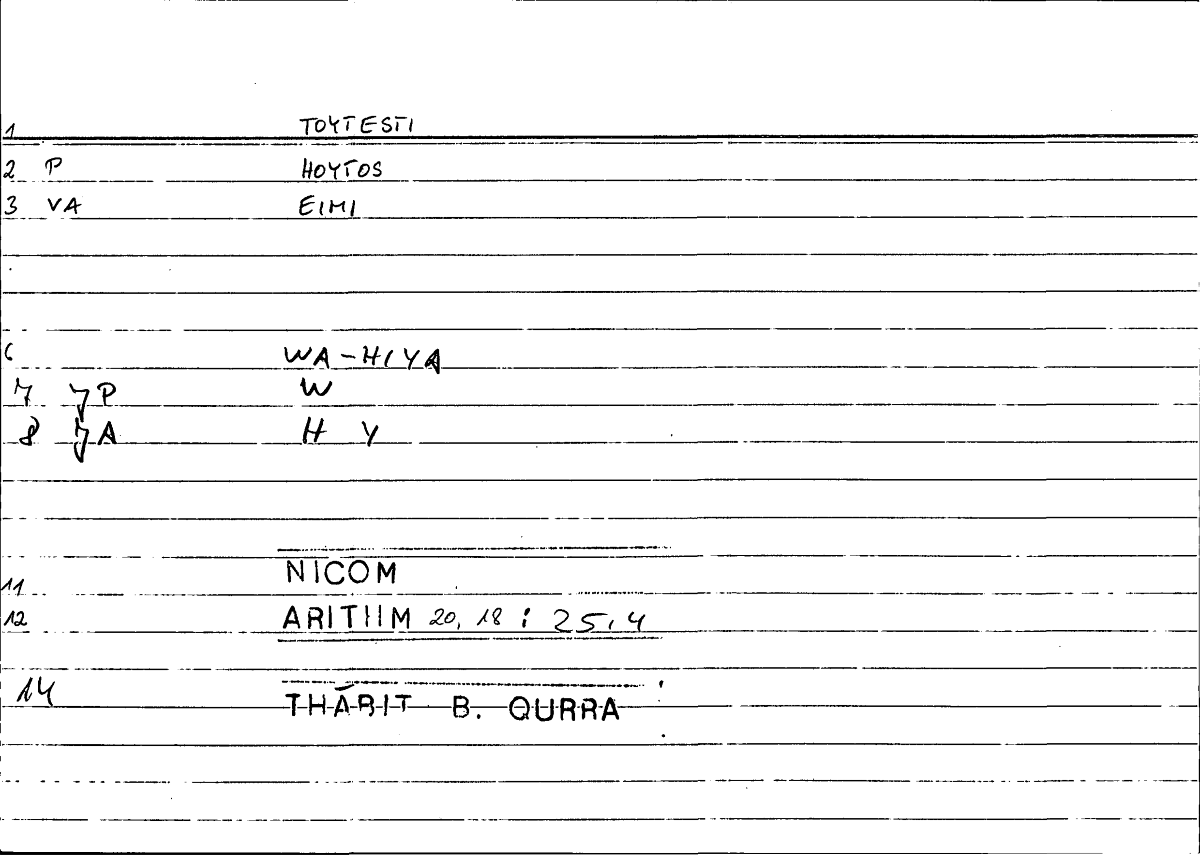 1 TOYTESTI
2 P HOYTOS
3 VA EIMI
6 WA-HIYA
7 7P W
8 7A H Y
11 NICOM
12 ARITHM 20, 18 : 25,4
14 THĀBIT B. QURRA